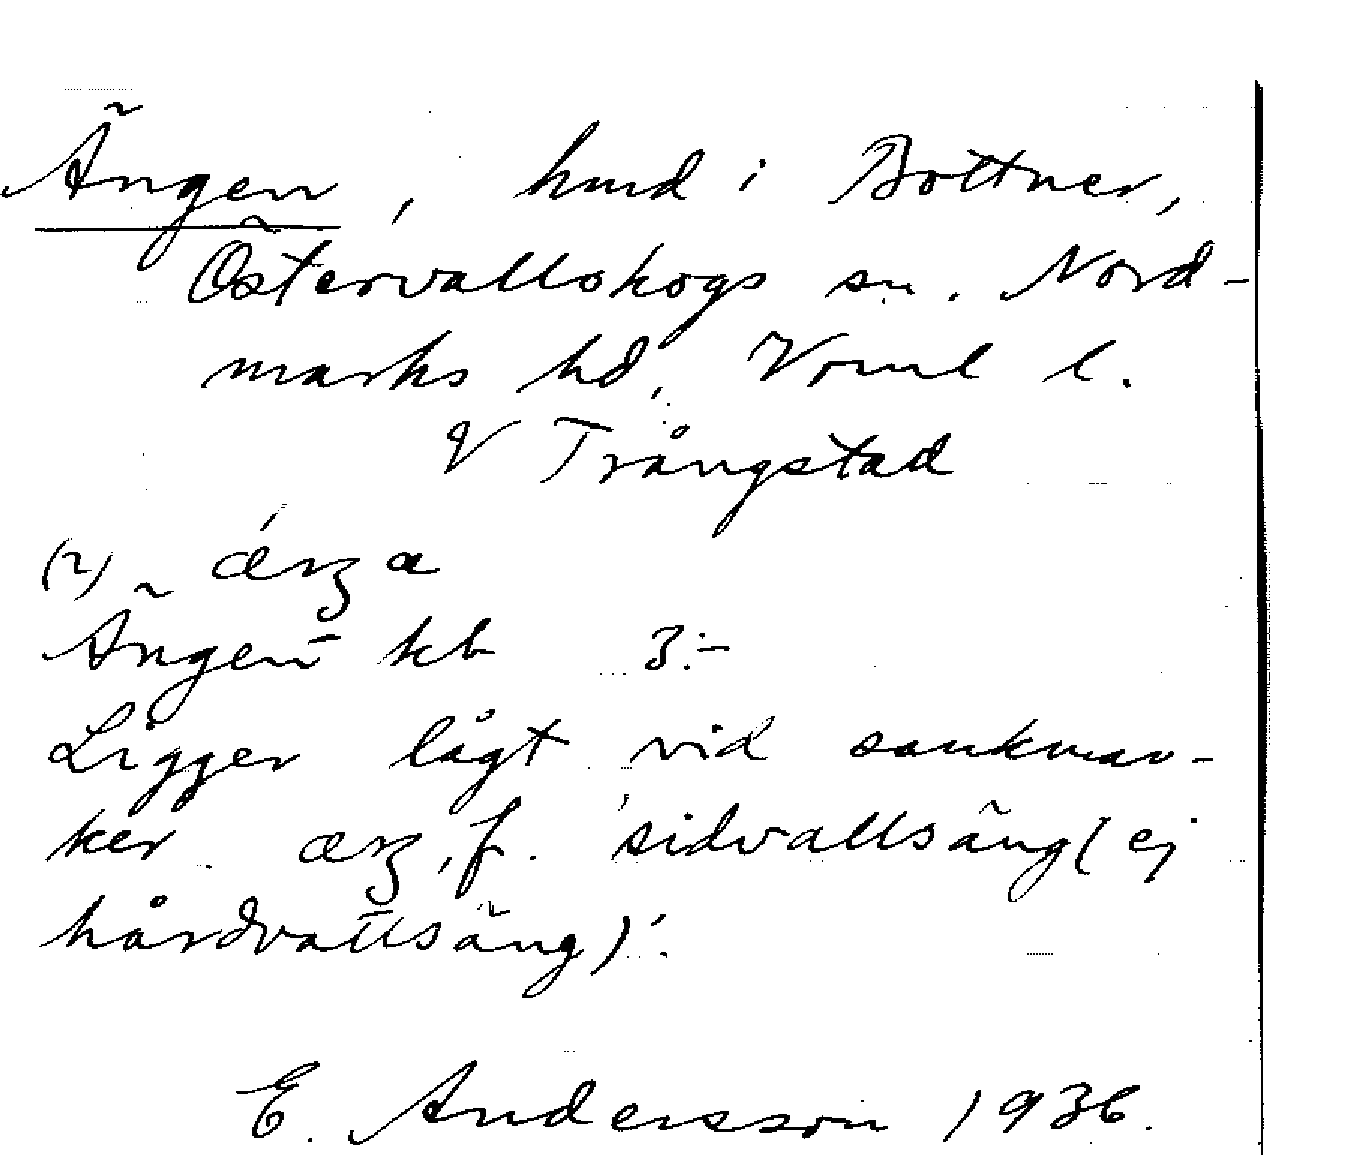 Ängen, hmd i Bottner,
Östervallskogs sn. Nord-
marks hd, Vrml l.
V Trångstad
(2) ǽrʒa
Ängen kb 3:-
Ligger lågt vid sankmar-
ker. ærʒ, f. 'sidvallsäng (ej
hårdvallsäng)'.
E. Andersson 1936.